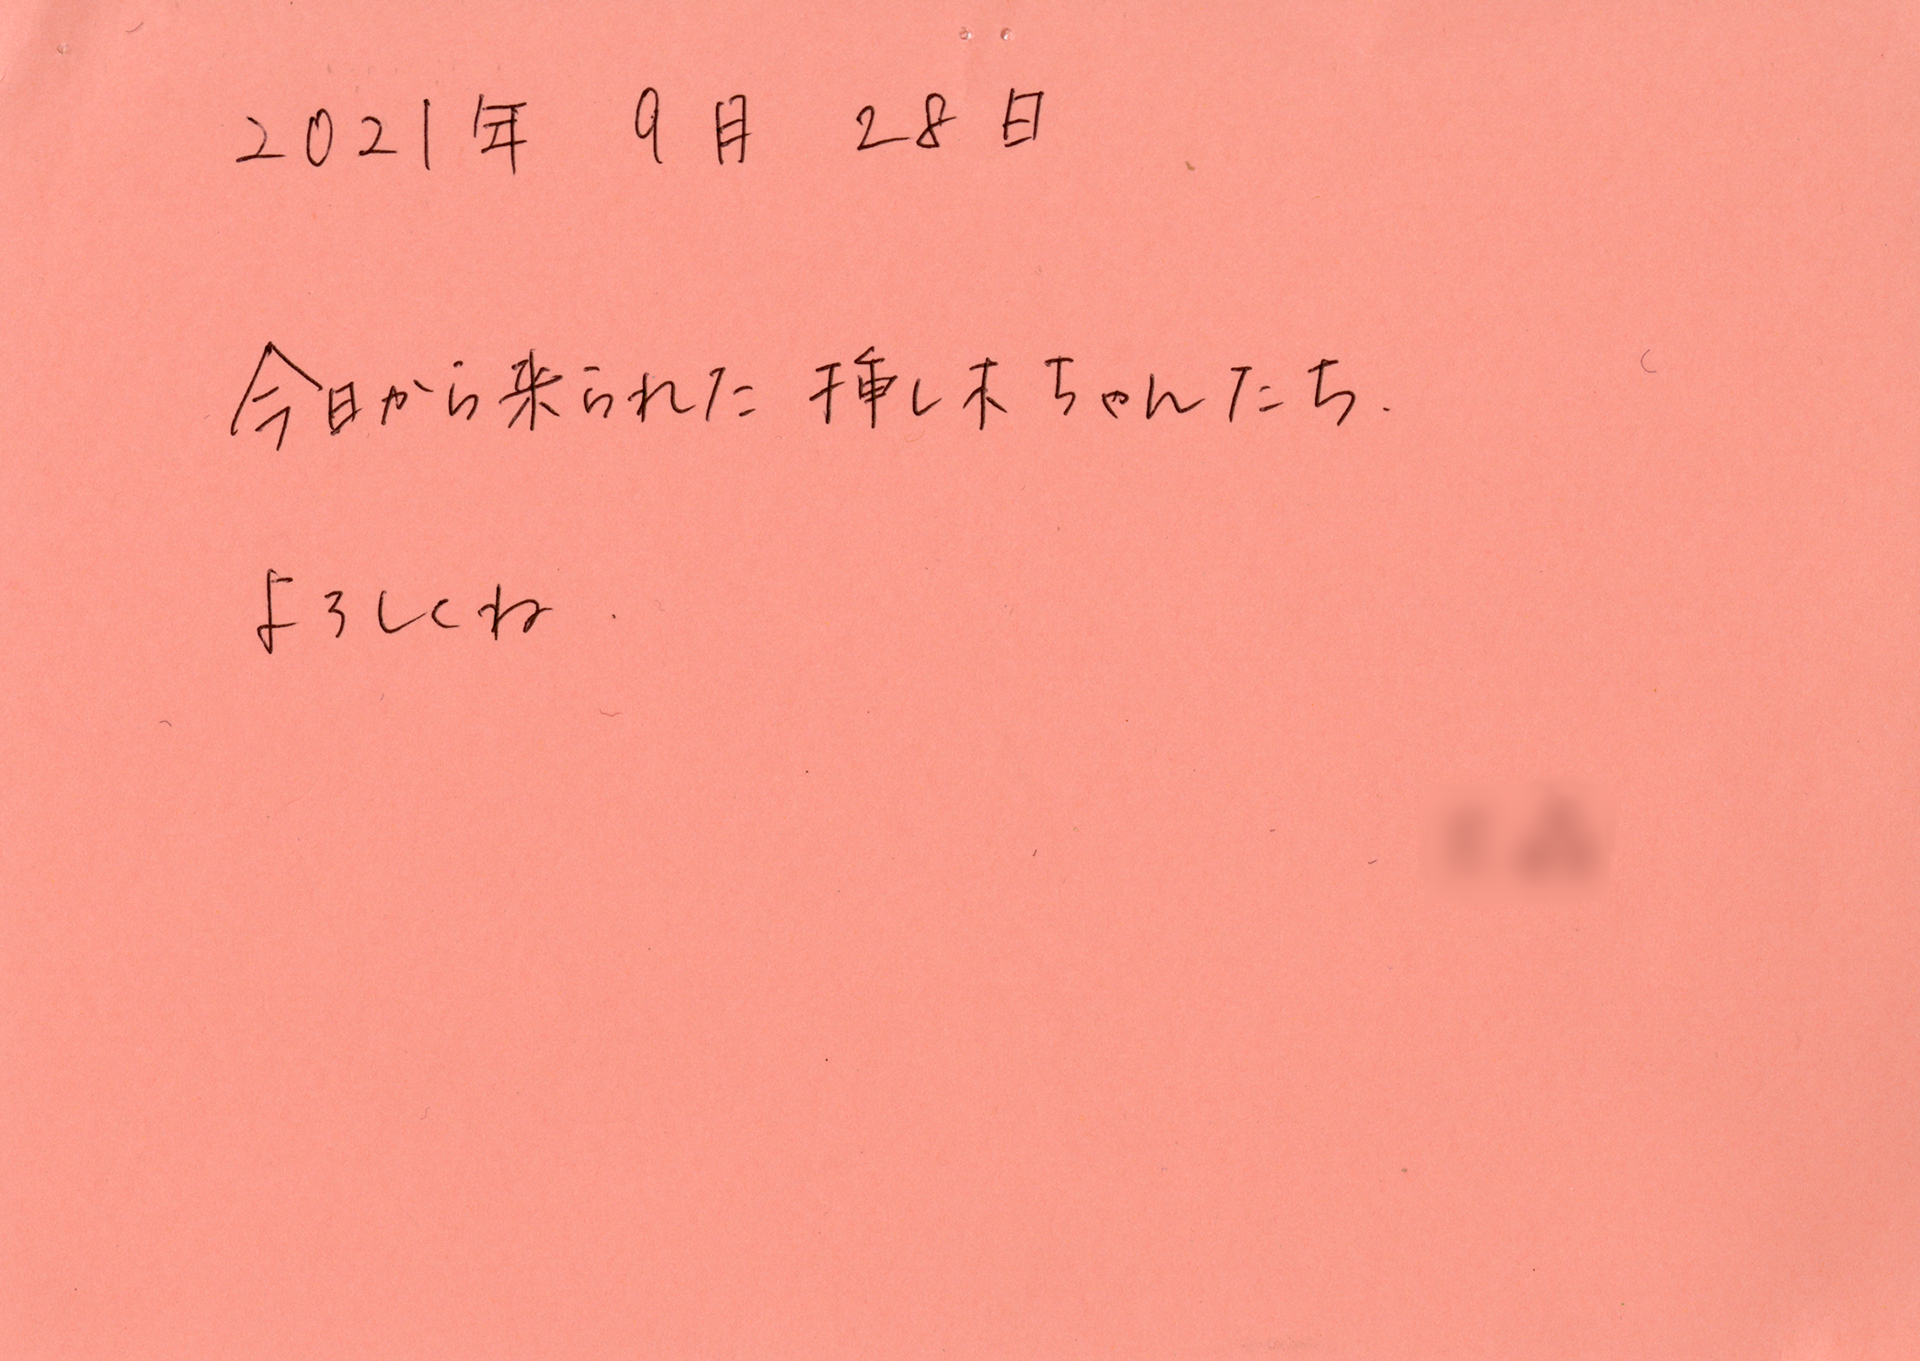 2021年 9月 28日
今日から来られた 挿し木ちゃんたち.
よろしくね.